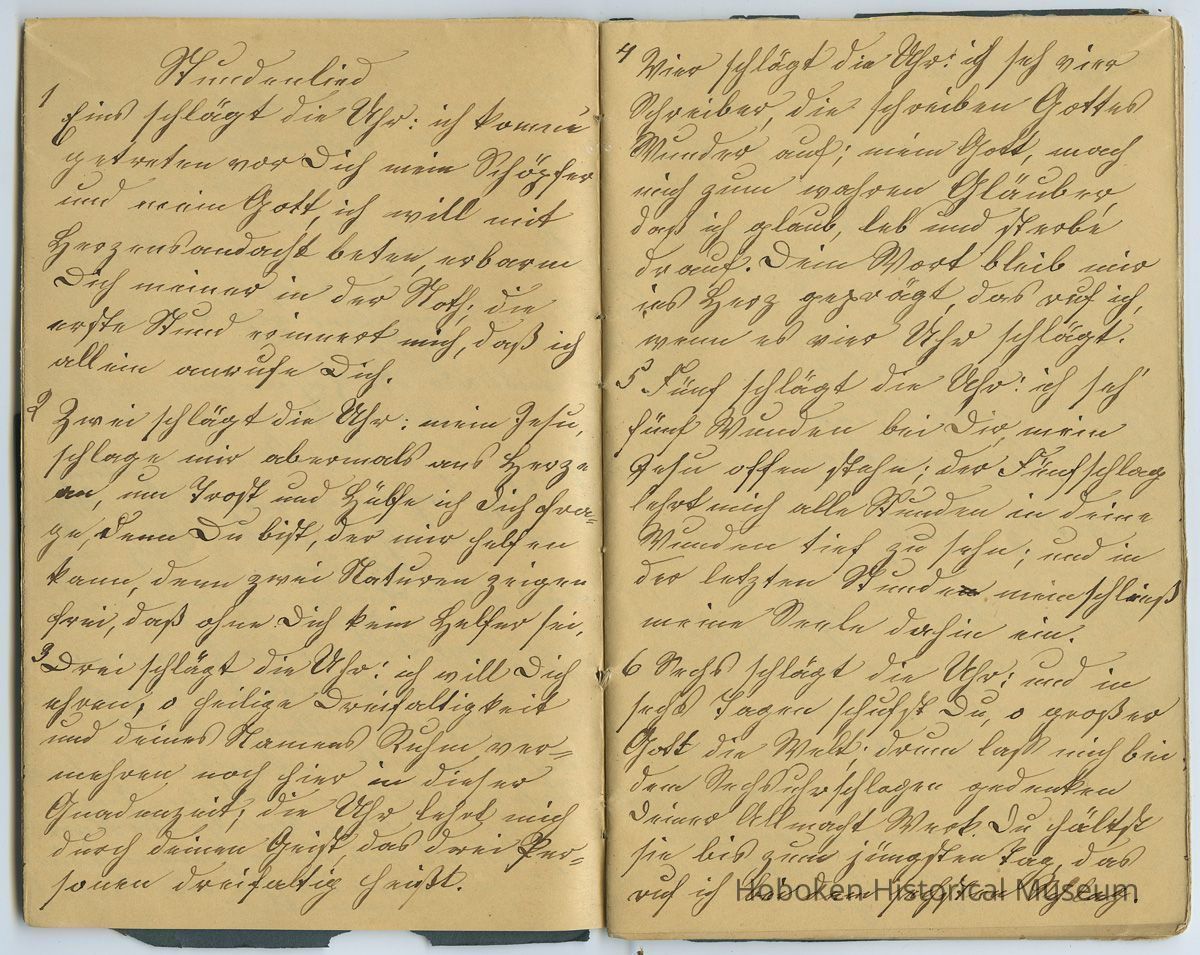 Stundenlied
1
Eins schlägt die Uhr: ich komme
getreten vor Dich mein Schöpfer
und mein Gott, ich will mit
Herzensandacht beten, erbarm
Dich meiner in der Noth; die
erste Stund erinnert mich, daß ich
allein anrufe Dich.
2 Zwei schlägt die Uhr: mein Jesu,
schlage mir abermals ans Herze
an, um Trost und Hülfe ich Dich fra=
ge, denn Du bist, der mir helfen
kann, denn zwei Naturen zeigen
frei, daß ohne Dich kein Helfer sei,
3 Drei schlägt die Uhr: ich will Dich
ehren, o heilige Dreifaltigkeit
und deines Namens Ruhm ver=
mehren noch hier in dieser
Gnadenzeit; die Uhr lehrt mich
durch deinen Geist, das drei Per=
sonen dreifaltig heißt.
4 Vier schlägt die Uhr: ich seh vier
Schreiber, die schreiben Gottes
Wunder auf; mein Gott, mach
mich zum wahren Gläuber,
daß ich glaub, leb und sterbe
drauf. Dein Wort bleib mir
ins Herz geprägt, das ruf ich,
wenn es vier Uhr schlägt.
5 Fünf schlägt die Uhr: ich seh'
fünf Wunden bei Dir, mein
Jesu offen stehn; der Fünfschlag
lehrt mich alle Stunden in deine
Wunden tief zu sehn; und in
der letzten Stund mein schließ
meine Seele dahin ein.
6 Sechs schlägt die Uhr: und in
sechs Tagen schufst Du, o großer
Gott die Welt; drum laß mich bei
dem Sechsuhrschlagen gedenken
Deiner Allmacht Werk. Du hältst
sie bis zum jüngsten Tag, das
ruf ich bei dem sechsten Schlag.
Hoboken Historical Museum